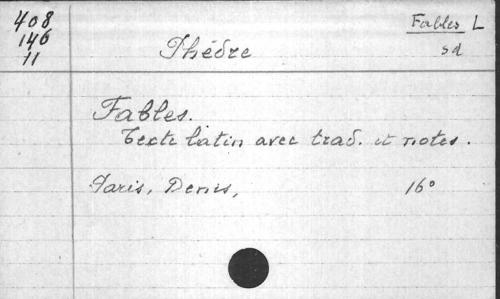 408
146
11
Fables L
sd
Phèdre
Fables.
Texte latin avec trad. et notes.
Paris, Denis, 16°